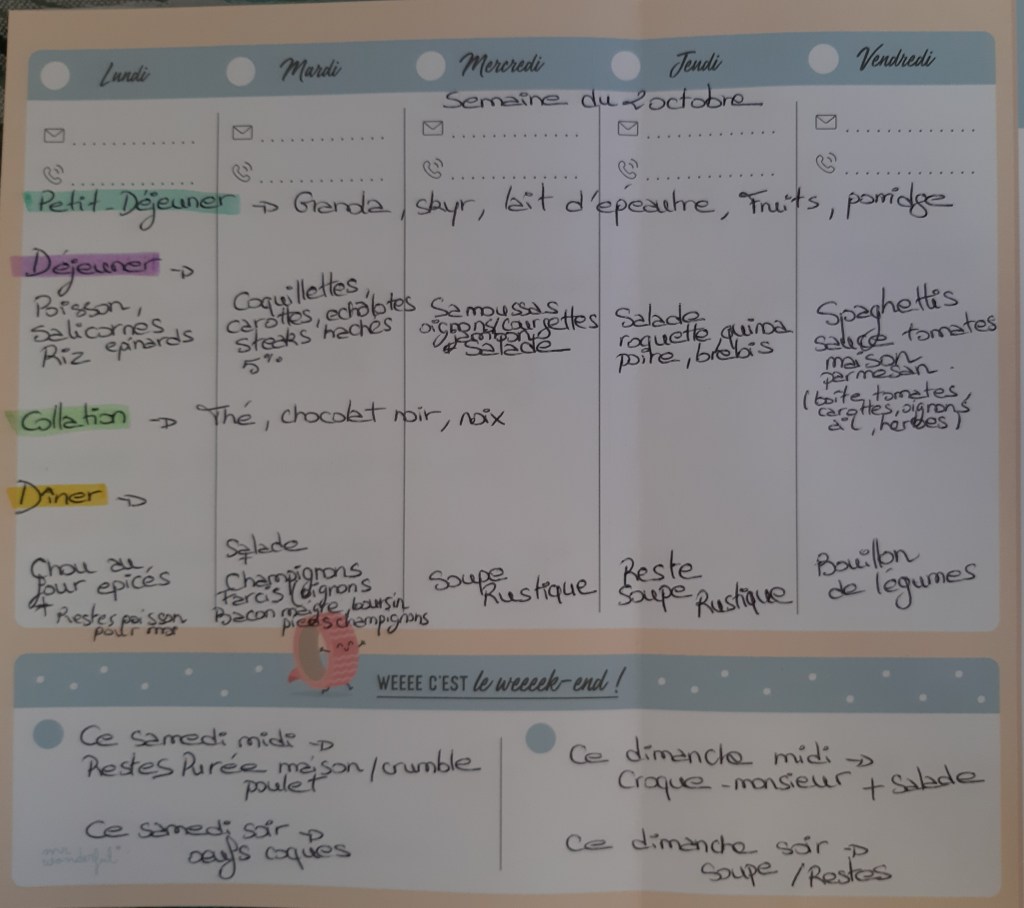 Lundi
Mardi
Mercredi
Jeudi
Vendredi
Semaine du 2 octobre
Petit-Déjeuner → Granola, skyr, lait d'épeautre, Fruits, porridge
Déjeuner →
Poisson,
salicornes
Riz epinards
Coquillettes,
carottes, echalotes
steaks hachés
5%
Samoussas
oignons/courgettes
jambons
+ Salade
Salade
roquette quinoa
poire, brebis
Spaghettis
sauce tomates
maison
parmesan.
(boîte, tomates,
carottes, oignons
ail, herbes)
Collation → Thé, chocolat noir, noix
Dîner →
Chou au
four epicés
+ Restes poisson
pour moi
Salade
+
Champignons
farcis/oignons
Bacon maigre, boursin
pieds champignons
Soupe
Rustique
Reste
Soupe Rustique
Bouillon
de légumes
WEEEE C'EST le weeeek-end !
Ce samedi midi →
Restes Purée maison/crumble
poulet
Ce samedi soir →
oeufs coques
Ce dimanche midi →
Croque-monsieur + Salade
Ce dimanche soir →
Soupe /Restes
mr. wonderful*